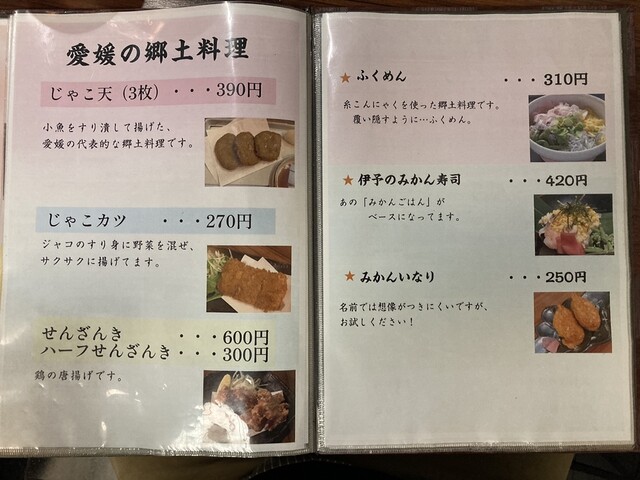 愛媛の郷土料理
じゃこ天（3枚）・・・390円
小魚をすり潰して揚げた、
愛媛の代表的な郷土料理です。
じゃこカツ ・・・270円
ジャコのすり身に野菜を混ぜ、
サクサクに揚げてます。
せんざんき ・・・600円
ハーフせんざんき・・・300円
鶏の唐揚げです。
★ ふくめん ・・・310円
糸こんにゃくを使った郷土料理です。
覆い隠すように…ふくめん。
★ 伊予のみかん寿司 ・・・420円
あの「みかんごはん」が
ベースになってます。
★ みかんいなり ・・・250円
名前では想像がつきにくいですが、
お試しください！